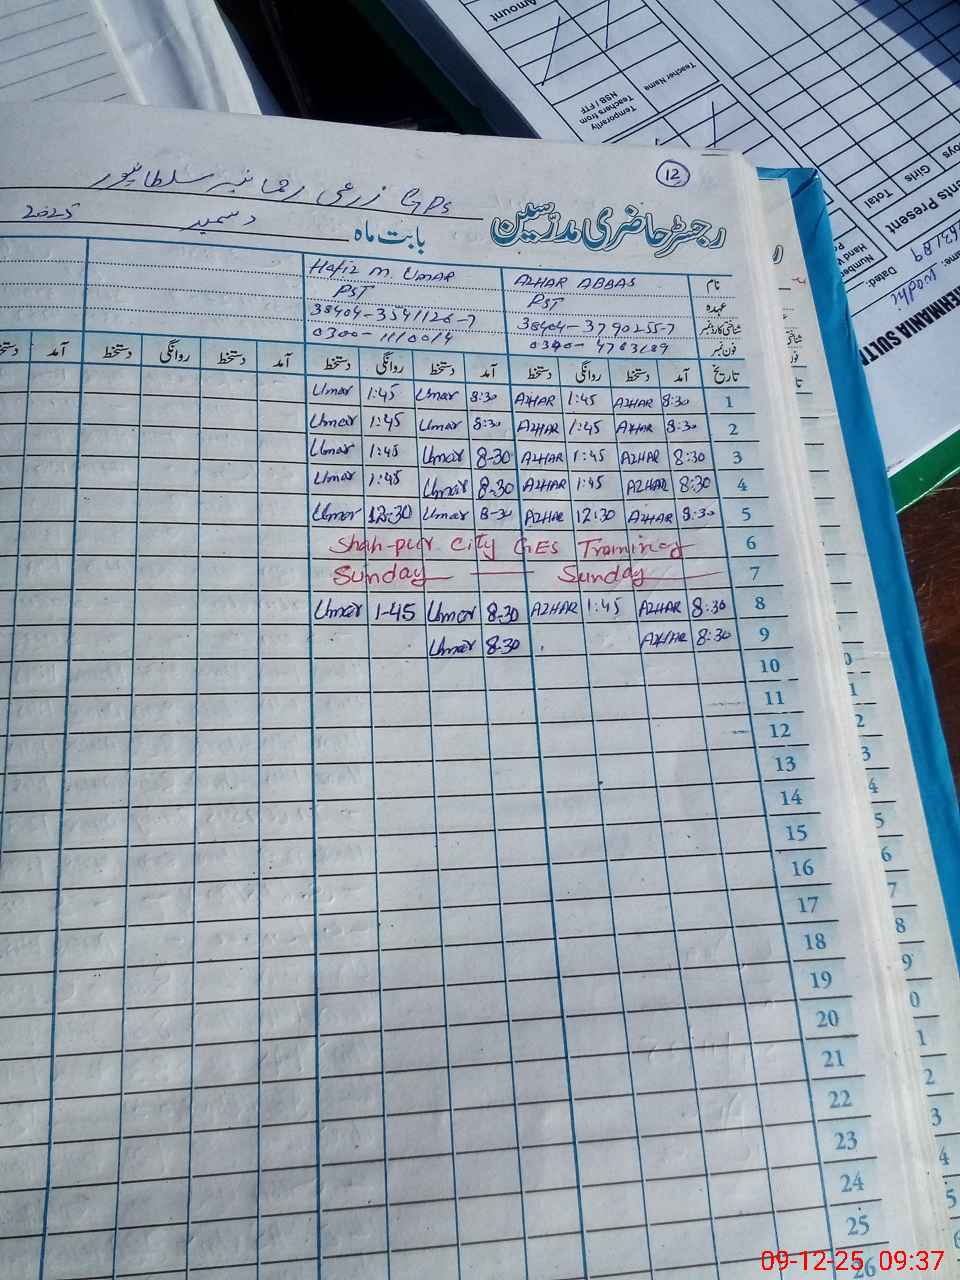 12
GPS زرعی رحمانیہ سلطانپور
رجسٹر حاضری مدرسین
بابت ماہ دسمبر 2025
نام AZHAR ABBAS Hafiz M. UMAR
عہدہ PST PST
شناختی کارڈ نمبر 38404-3790255-7 38404-3541126-7
فون نمبر
تاریخ آمد دستخط روانگی دستخط آمد دستخط روانگی دستخط آمد دستخط روانگی دستخط آمد دستخط
1 8:30 AZHAR 1:45 AZHAR 8:30 Umar 1:45 Umar
2 8:30 AZHAR 1:45 AZHAR 8:30 Umar 1:45 Umar
3 8:30 AZHAR 1:45 AZHAR 8-30 Umar 1:45 Umar
4 8:30 AZHAR 1:45 AZHAR 8-30 Umar 1:45 Umar
5 8:30 AZHAR 12:30 AZHAR 8-30 Umar 12-30 Umar
6 Shah-pur City GES Training
7 Sunday Sunday
8 8:30 AZHAR 1:45 AZHAR 8-30 Umar 1-45 Umar
9 8:30 AZHAR 8-30 Umar
10
11
12
13
14
15
16
17
18
19
20
21
22
23
24
25
26
Amount
Teacher Name
Temporarily
Teachers from
NSB / FTF
Girls
Total
Dated:
09-12-25 09:37